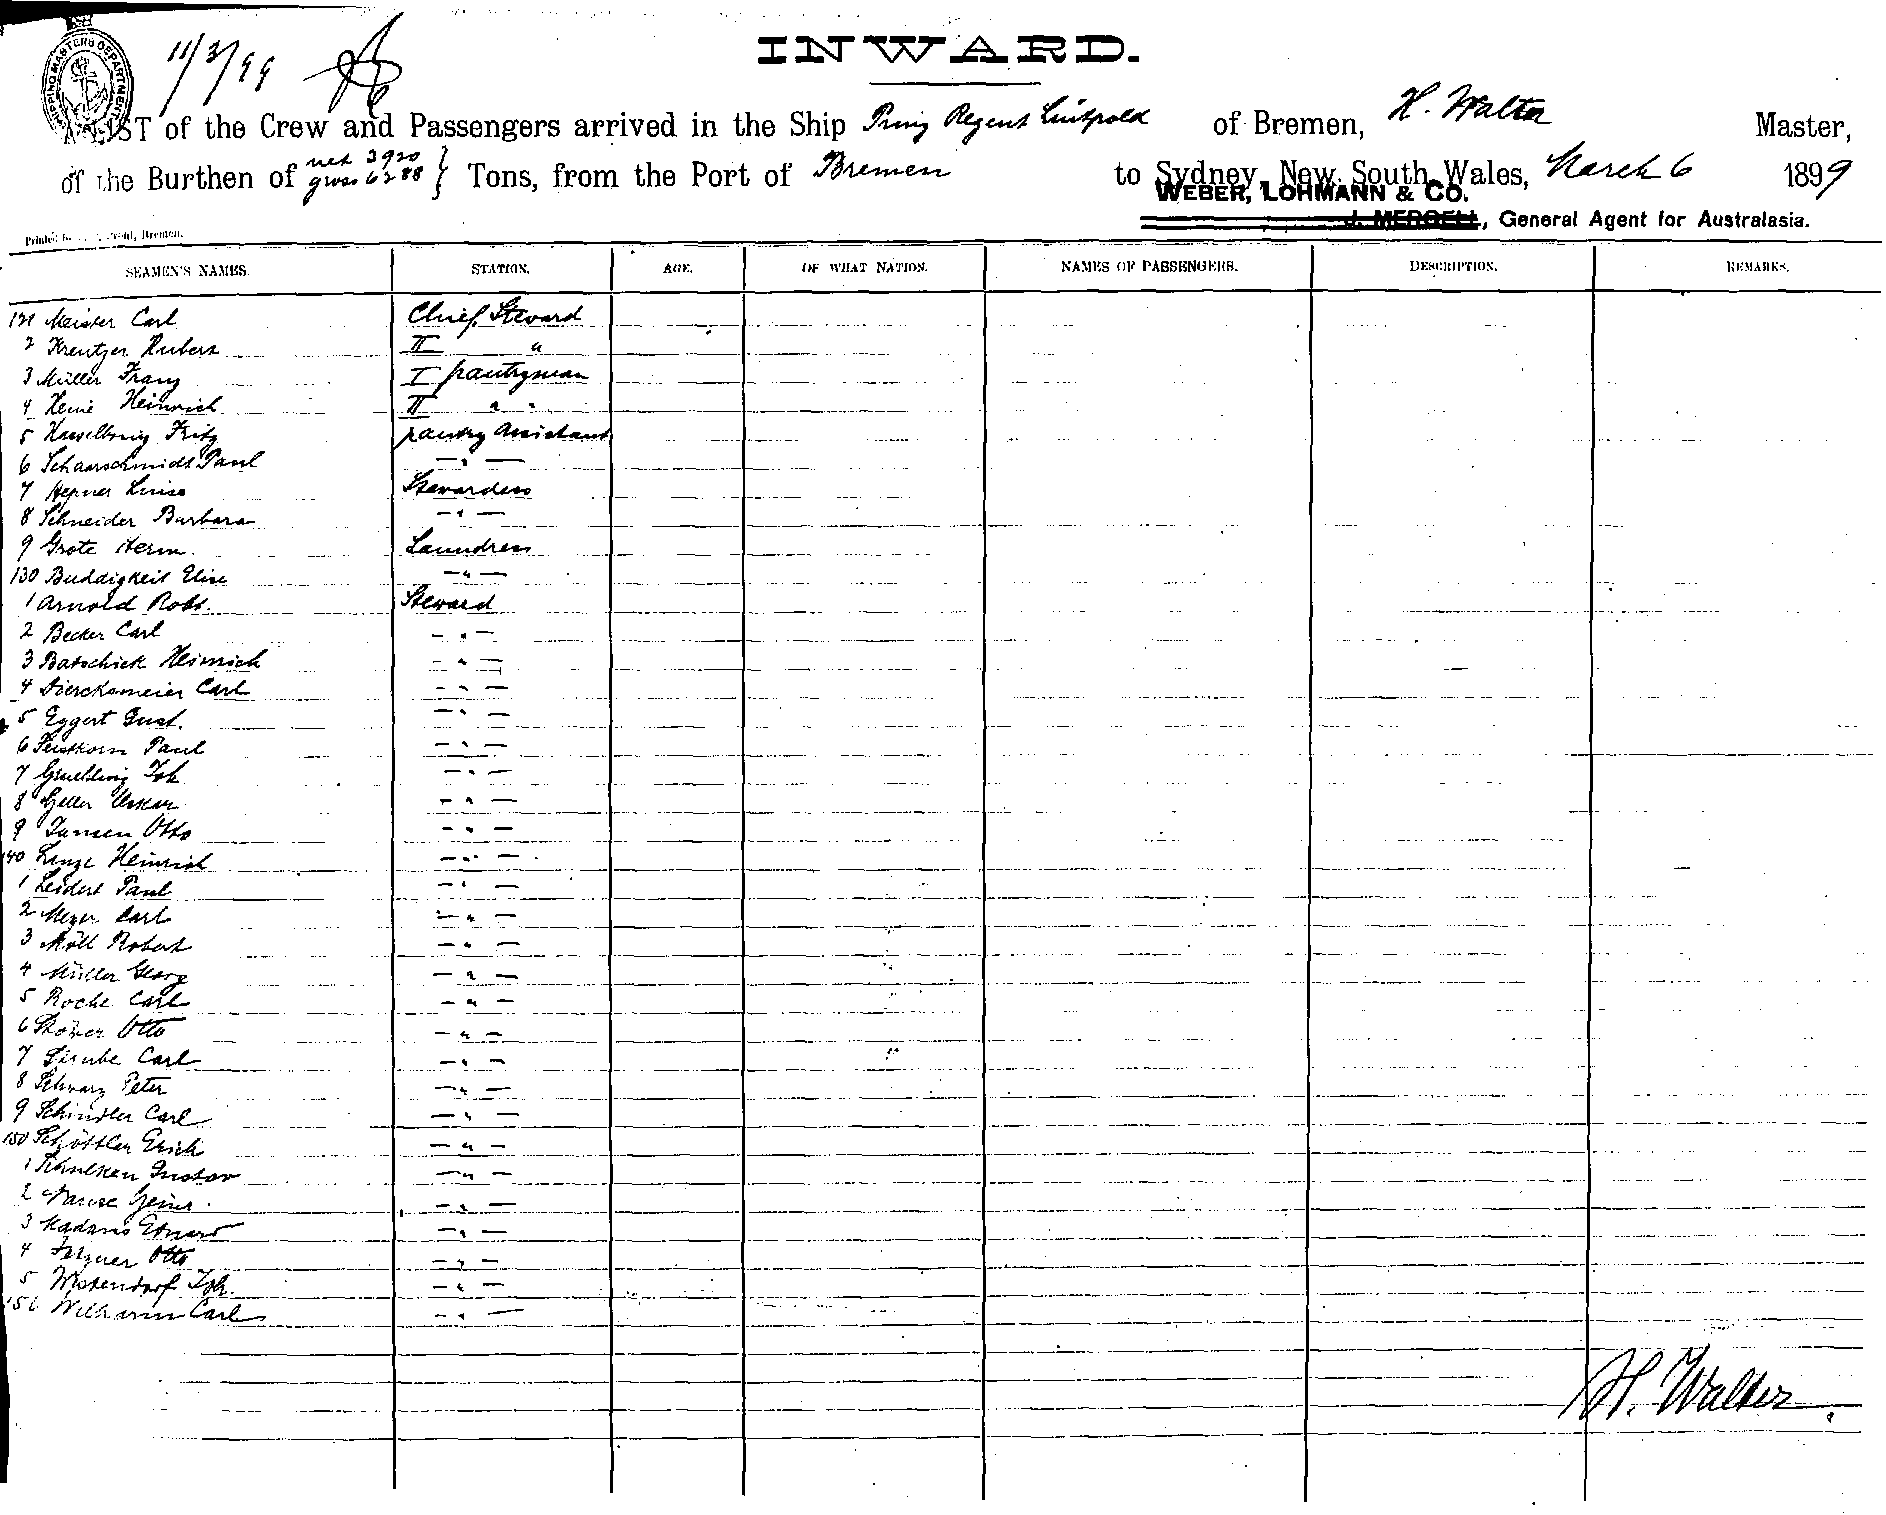 SHIPPING MASTERS DEPARTMENT
11/3/99
INWARD.
A LIST of the Crew and Passengers arrived in the Ship Prinz Regent Luitpold of Bremen, H. Walter Master,
of the Burthen of net 3920 gross 6288 } Tons, from the Port of Bremen to Sydney, New South Wales, March 6 1899
WEBER, LOHMANN & CO.
J. MERGELL, General Agent for Australasia.
Printed Bremen.
SEAMEN'S NAMES. STATION. AGE. OF WHAT NATION. NAMES OF PASSENGERS. DESCRIPTION. REMARKS.
121 Meister Carl Chief Steward
2 Kreutzer Hubert II "
3 Müller Franz I pantryman
4 Heine Heinrich II " "
5 Fritz pantry Assistant
6 Scharschmidt Paul — " —
7 Hepner Luise Stewardess
8 Schneider Barbara — " —
9 Grote Herm. Laundress
130 Buddigkeit Elise — " —
1 Arnold Robt. Steward
2 Becker Carl — " —
3 Batschick Heinrich — " —
4 Dierksmeier Carl — " —
5 Eggert Gust. — " —
6 Paul — " —
7 Joh — " —
8 Oskar — " —
9 Jansen Otto — " —
140 Lenze Heinrich — " —
1 Leidert Paul — " —
2 Meyer Carl — " —
3 Möll Robert — " —
4 Müller Georg — " —
5 Roche Carl — " —
6 Otto — " —
7 Carl — " —
8 Schwarz Peter — " —
9 Schindler Carl — " —
150 Schöttler Erich — " —
1 Schulken Gustav — " —
2 — " —
3 Eduard — " —
4 Otto — " —
5 Westendorf Joh. — " —
156 Wilharm Carl — " —
H. Walter.